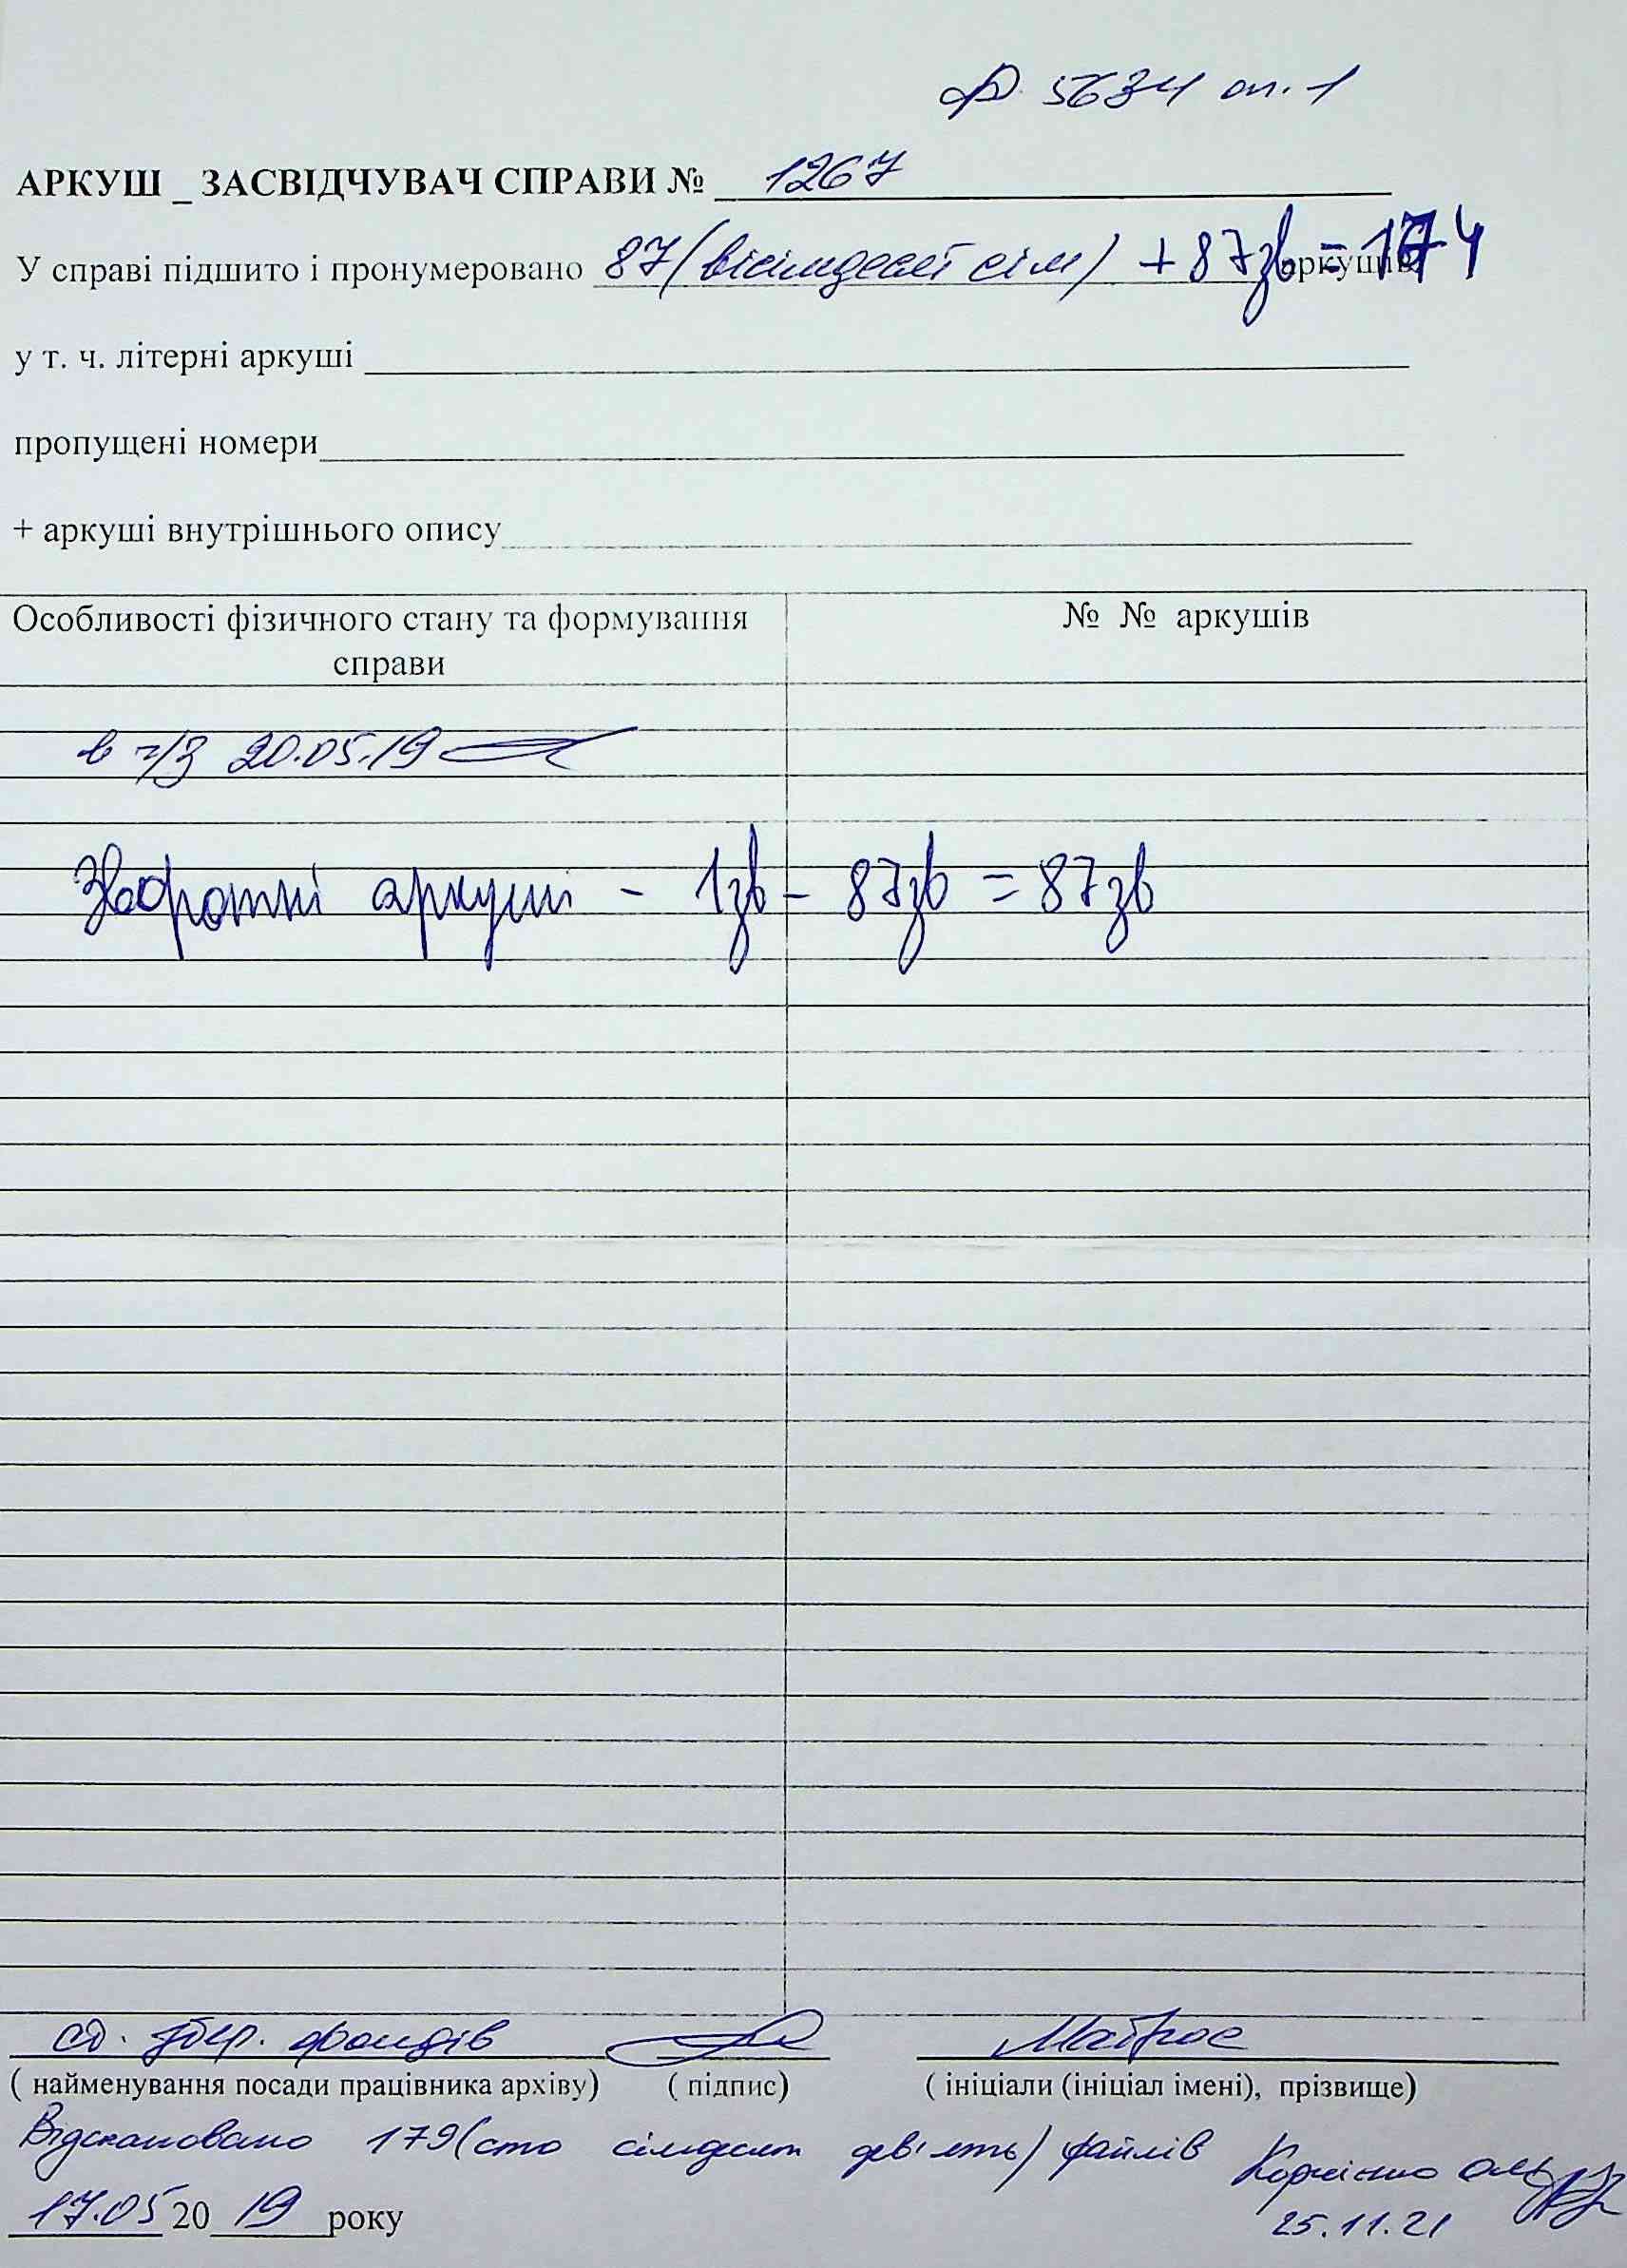 Ф. 5634 оп. 1
АРКУШ _ ЗАСВІДЧУВАЧ СПРАВИ № 1267
У справі підшито і пронумеровано 87 (вісімдесят сім) + 87зв = 174 аркушів
у т. ч. літерні аркуші
пропущені номери
+ аркуші внутрішнього опису
Особливості фізичного стану та формування
справи
№ № аркушів
в ч/з 20.05.19
Зворотні аркуші - 1зв - 87зв = 87зв
фондів
Матрос
( найменування посади працівника архіву) ( підпис) ( ініціали (ініціал імені), прізвище)
Відскановано 179 (сто сімдесят дев'ять) файлів
17.05 20 19 року
25.11.21